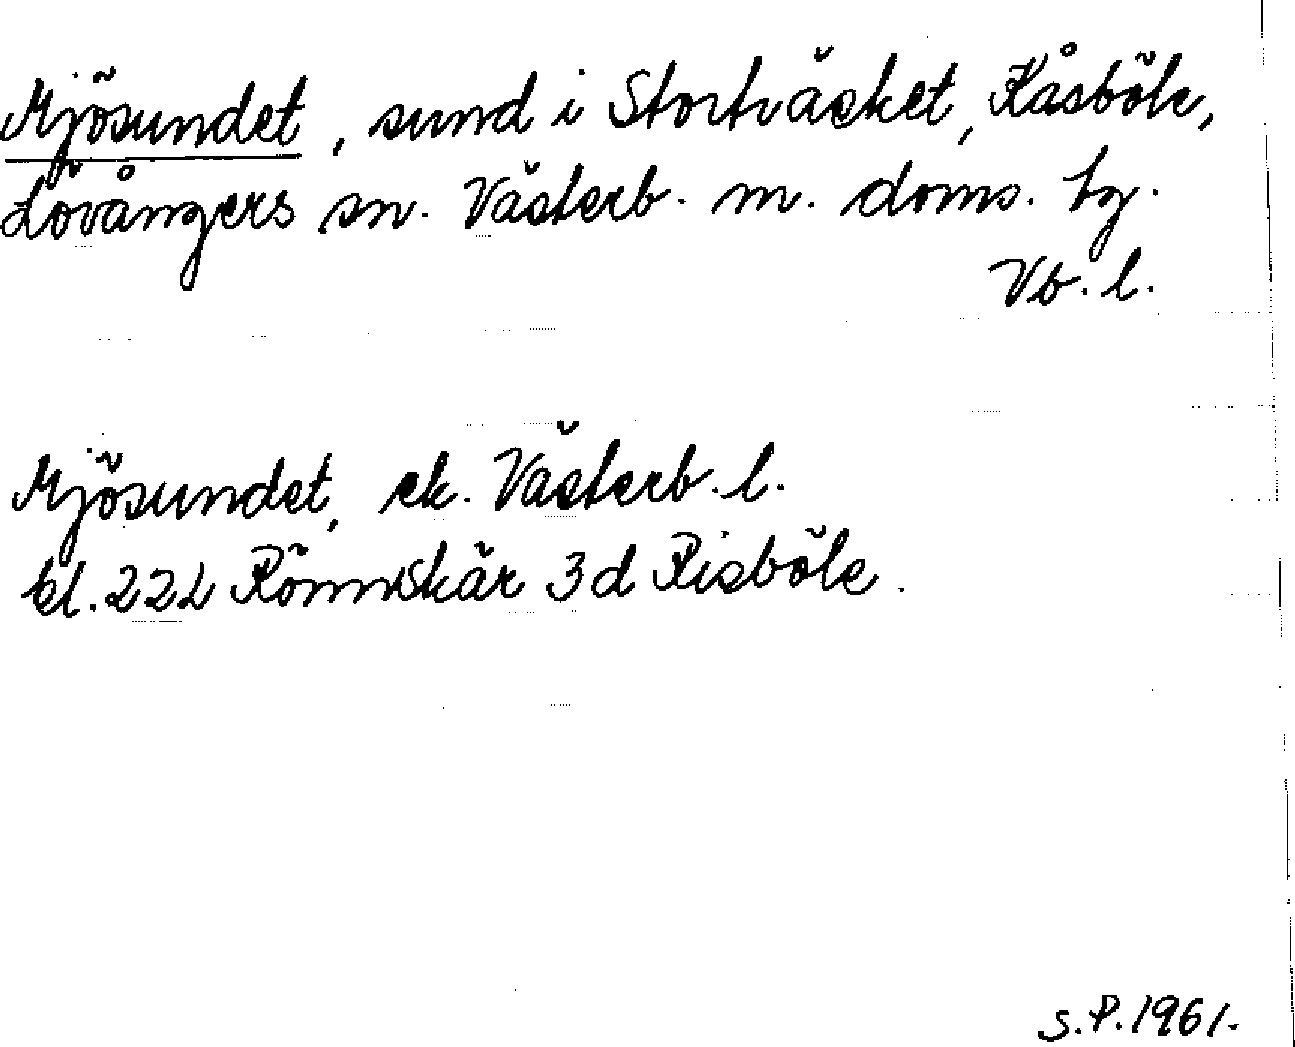 Mjösundet, sund i Storträsket, Kåsböle,
Lövångers sn. Västerb. m. doms. tg.
Vb. l.
Mjösundet, ek. Västerb. l.
bl. 222 Rönnskär 3d Risböle.
S.P. 1961.